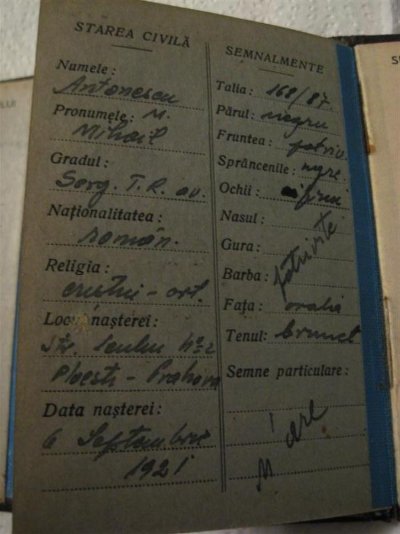 STAREA CIVILĂ
Numele:
Antonescu
Pronumele: M.
Mihail
Gradul:
Serg. T.R. av.
Naționalitatea:
român.
Religia:
ort.
Locul nașterei:
Str. No 2
Ploesti - Prahova
Data nașterei:
6 Septembrie
1921
SEMNALMENTE
Talia: 168/87
Părul: negru
Fruntea: potriv.
Sprâncenile: negre
Ochii:
Nasul:
Gura:
potrivite
Barba:
Fața: ovală
Tenul: brunet
Semne particulare:
N'are